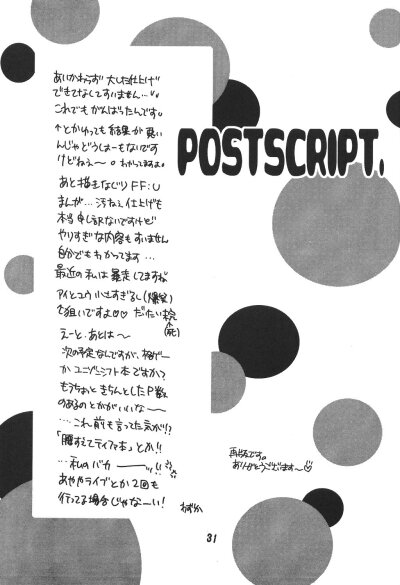 POSTSCRIPT.
あいかわらず 大した仕上げ
できてなくてすいません…
これでもがんばったんです。
↑とかゆっても結果が悪い
んじゃどうしようもないです
けどねえ〜。わかってますよ。
あと描きなじりFF:U
まんが…汚ねえ仕上げも
本当申し訳ないですけど
やりすぎな内容もすいません
自分でもわかってます…
最近の私は暴走してますね
アイとユウ小さすぎるし(爆笑)
↑狙いですよ♡♡ だいたい
(死)
えーと、あとは〜
次の予定なんですが、格ゲー
か ユニゾンシフト本ですかね?
もうちょいときちんとしたP数
のあるのとかがいいな〜
……これ前も言ってた気が!?
「腰すえてティファ本」とか!!
…私のバカーーッ!!
あややライブとか2回も
行ってる場合じゃなーい!
再版です。
ありがとうございます〜♡
31